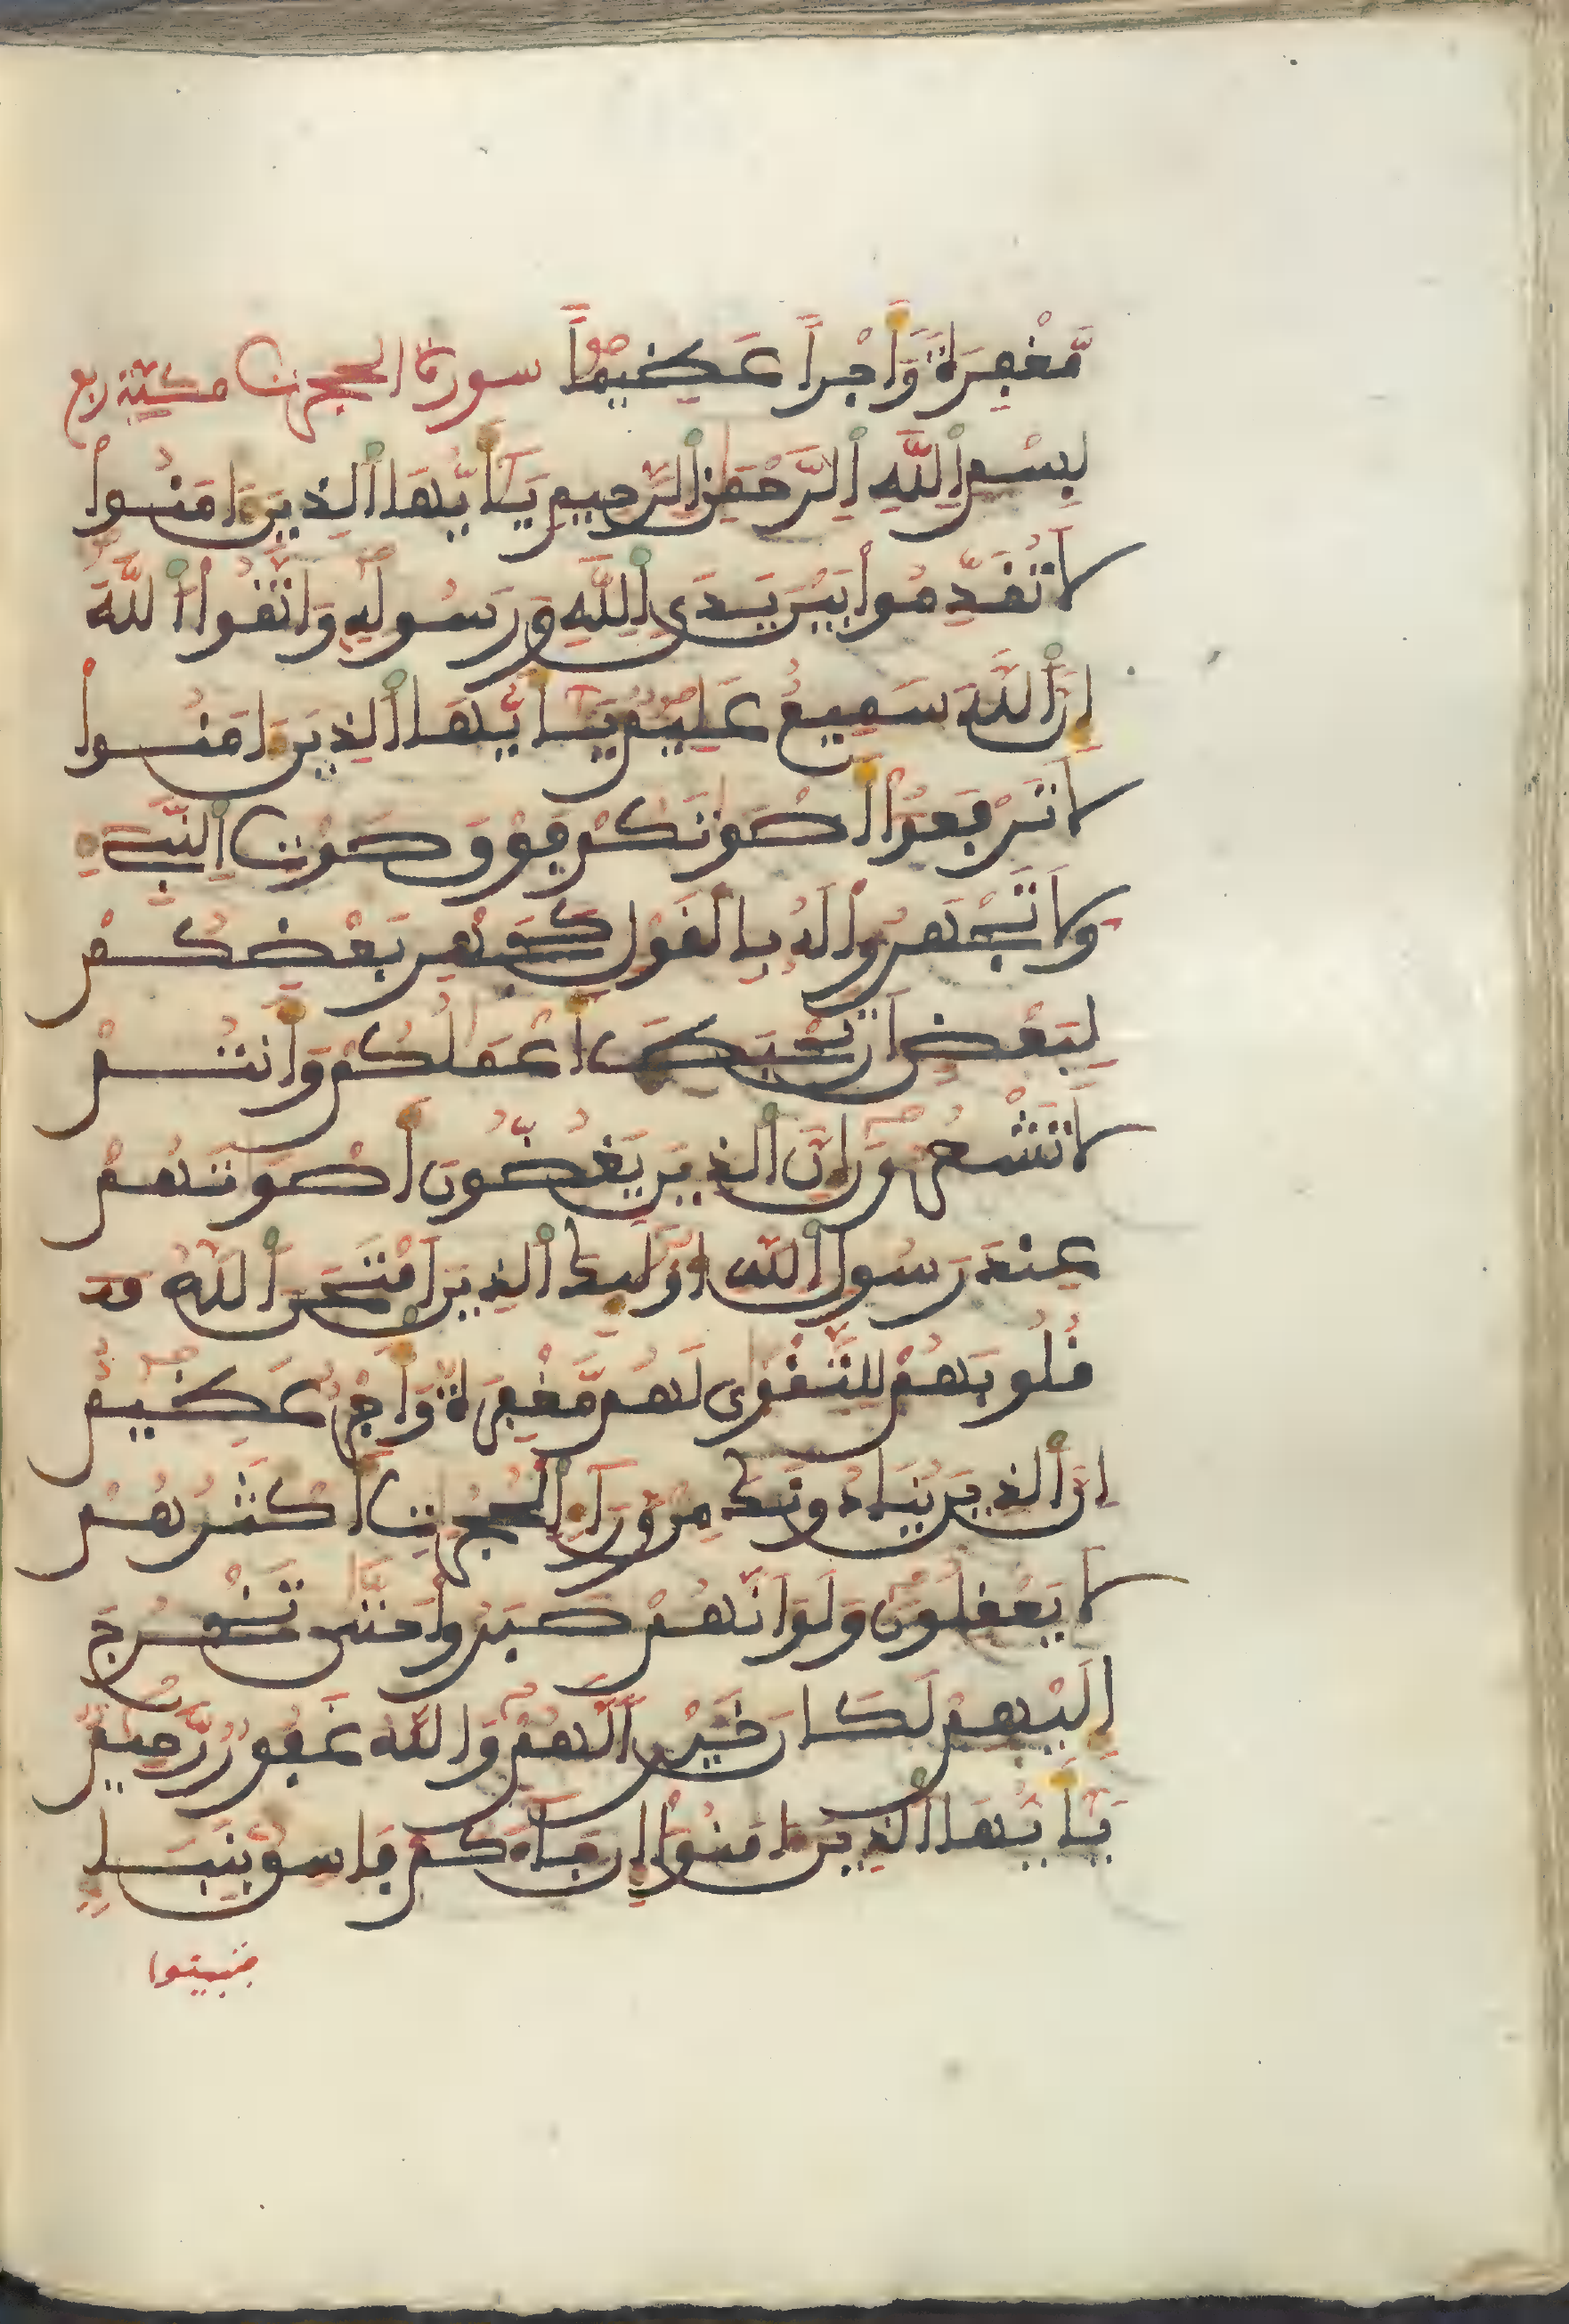 مَّغْفِرَةً وَأَجْراً عَظِيماً سورة الحجرت مكية ربع
بِسْمِ اِللَّهِ اِلرَّحْمَٰنِ اِلرَّحِيمِ يَٰأَيُّهَا اَلذِينَ ءَامَنُوا
لَا تُقَدِّمُوا بَيْنَ يَدَيِ اِللَّهِ وَرَسُولِهِ وَاتَّقُوا اُللَّهَ
إِنَّ اَللَّهَ سَمِيعٌ عَلِيمٌ يَٰأَيُّهَا اَلذِينَ ءَامَنُوا
لَا تَرْفَعُوا أَصْوَٰتَكُمْ فَوْقَ صَوْتِ اِلنَّبِےءِ
وَلَا تَجْهَرُوا لَهُ بِالْقَوْلِ كَجَهْرِ بَعْضِكُمْ
لِبَعْضٍ أَن تَحْبَطَ أَعْمَٰلُكُمْ وَأَنتُمْ
لَا تَشْعُرُونَ إِنَّ اَلذِينَ يَغُضُّونَ أَصْوَٰتَهُمْ
عِندَ رَسُولِ اِللَّهِ أُوْلَٰئِكَ اَلذِينَ اَمْتَحَنَ اَللَّهُ
قُلُوبَهُمْ لِلتَّقْوَىٰ لَهُم مَّغْفِرَةٌ وَأَجْرٌ عَظِيمٌ
إِنَّ اَلذِينَ يُنَادُونَكَ مِنْ وَرَآءِ اِلْحُجُرَٰتِ أَكْثَرُهُمْ
لَا يَعْقِلُونَ وَلَوْ أَنَّهُمْ صَبَرُوا حَتَّىٰ تَخْرُجَ
إِلَيْهِمْ لَكَانَ خَيْراً لَّهُمْ وَاللَّهُ غَفُورٌ رَّحِيمٌ
يَٰأَيُّهَا اَلذِينَ ءَامَنُوا إِن جَآءَكُمْ فَاسِقٌ بِنَبَإٍ
فتبينوا